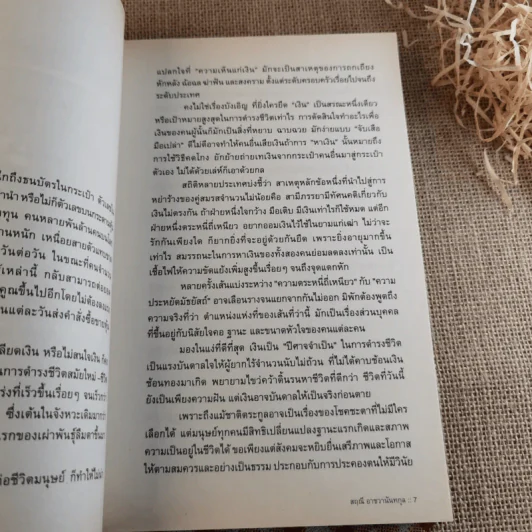 กถึงธนบัตรในกระเป๋า
วันต่อวัน ในขณะที่คนจำนวน
เหล่านี้ กลับสามารถต่อย
คูณขึ้นไปอีกโดยไม่ต้องลงแรง
แต่ละวันส่งคำสั่งซื้อขายหุ้น
ลียดเงิน หรือไม่สนใจเงิน ก็คง
ในการดำรงชีวิตสมัยใหม่
ร่งที่เร็วขึ้นเรื่อยๆ จนเร็วกว่า
ซึ่งเต้นในจังหวะเดิมมา
แรกของเผ่าพันธุ์ลืมตาขึ้นมา
ต่อชีวิตมนุษย์ ก็ทำให้ไม่น่า
แปลกใจที่ "ความเห็นแก่เงิน" มักจะเป็นสาเหตุของการถกเถียง
หักหลัง ฉ้อฉล ฆ่าฟัน และสงคราม ตั้งแต่ระดับครอบครัวเรื่อยไปจนถึง
ระดับประเทศ
คงไม่ใช่เรื่องบังเอิญ ที่ยิ่งใครยึด "เงิน" เป็นสรณะหนึ่งเดียว
หรือเป้าหมายสูงสุดในการดำรงชีวิตเท่าไร การตัดสินใจทำอะไรเพื่อ
เงินของคนผู้นั้นก็มักเป็นสิ่งที่หยาบ ฉาบฉวย มักง่ายแบบ "จับเสือ
มือเปล่า" ดีไม่ดีอาจทำให้คนอื่นเสียเงินถ้าการ "หาเงิน" นั้นหมายถึง
การใช้วิธีคดโกง ยักย้ายถ่ายเทเงินจากกระเป๋าคนอื่นมาสู่กระเป๋า
ตัวเอง ไม่ได้ด้วยเล่ห์ก็เอาด้วยกล
สถิติหลายประเทศบ่งชี้ว่า สาเหตุหลักข้อหนึ่งที่นำไปสู่การ
หย่าร้างของคู่สมรสจำนวนไม่น้อยคือ สามีภรรยามีทัศนคติเกี่ยวกับ
เงินไม่ตรงกัน ถ้าฝ่ายหนึ่งใจกว้าง มือเติบ มีเงินเท่าไรก็ใช้หมด แต่อีก
ฝ่ายหนึ่งตระหนี่ถี่เหนียว อยากออมเงินไว้ใช้ในยามแก่เฒ่า ไม่ว่าจะ
รักกันเพียงใด ก็ยากยิ่งที่จะอยู่ด้วยกันยืด เพราะยิ่งอายุมากขึ้น
เท่าไร สมรรถนะในการหาเงินของทั้งสองคนย่อมลดลงเท่านั้น เป็น
เชื้อไฟให้ความขัดแย้งเพิ่มสูงขึ้นเรื่อยๆ จนถึงจุดแตกหัก
หลายครั้งเส้นแบ่งระหว่าง "ความตระหนี่ถี่เหนียว" กับ "ความ
ประหยัดมัธยัสถ์" อาจเลือนรางจนแยกจากกันไม่ออก มิพักต้องพูดถึง
ความจริงที่ว่า ตำแหน่งแห่งที่ของเส้นที่ว่านี้ มักเป็นเรื่องส่วนบุคคล
ที่ขึ้นอยู่กับนิสัยใจคอ ฐานะ และขนาดหัวใจของคนแต่ละคน
มองในแง่ที่ดีที่สุด เงินเป็น "ปีศาจจำเป็น" ในการดำรงชีวิต
เป็นแรงบันดาลใจให้ผู้ยากไร้จำนวนนับไม่ถ้วน ที่ไม่ได้คาบช้อนเงิน
ช้อนทองมาเกิด พยายามไขว่คว้าดิ้นรนหาชีวิตที่ดีกว่า ชีวิตที่วันนี้
ยังเป็นเพียงความฝัน แต่เงินอาจบันดาลให้เป็นจริงก่อนตาย
เพราะถึงแม้ชาติตระกูลอาจเป็นเรื่องของโชคชะตาที่ไม่มีใคร
เลือกได้ แต่มนุษย์ทุกคนมีสิทธิเปลี่ยนแปลงฐานะแรกเกิดและสภาพ
ความเป็นอยู่ในชีวิตได้ ขอเพียงแต่สังคมจะหยิบยื่นเสรีภาพและโอกาส
ให้ตามสมควรและอย่างเป็นธรรม ประกอบกับการประคองตนให้มีวินัย
สฤณี อาชวานันทกุล :: 7